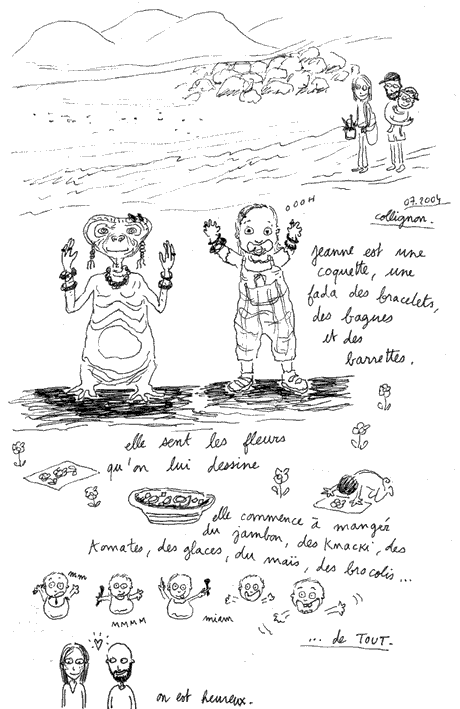 07.2004
collignon.
OOOH
Jeanne est une
coquette, une
fada des bracelets,
des bagues
et des
barrettes.
elle sent les fleurs
qu'on lui dessine
elle commence à manger
du jambon, des Knacki, des
tomates, des glaces, du maïs, des brocolis...
mm
MMMM
miam
... de TOUT.
on est heureux.